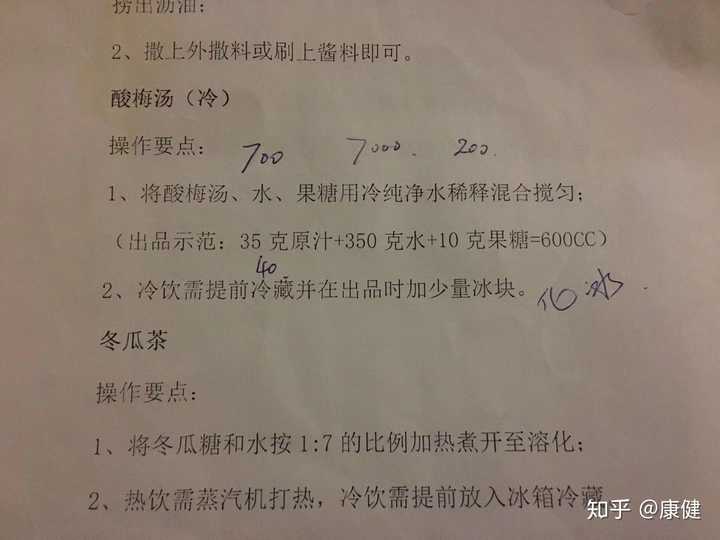 捞出沥油:
2、撒上外撒料或刷上酱料即可。
酸梅汤（冷）
操作要点: 700 7000. 200.
1、将酸梅汤、水、果糖用冷纯净水稀释混合搅匀;
（出品示范: 35克原汁+350克水+10克果糖=600CC）
40
2、冷饮需提前冷藏并在出品时加少量冰块。 冰
冬瓜茶
操作要点:
1、将冬瓜糖和水按1:7的比例加热煮开至溶化;
2、热饮需蒸汽机打热，冷饮需提前放入冰箱冷藏
知乎 @康健